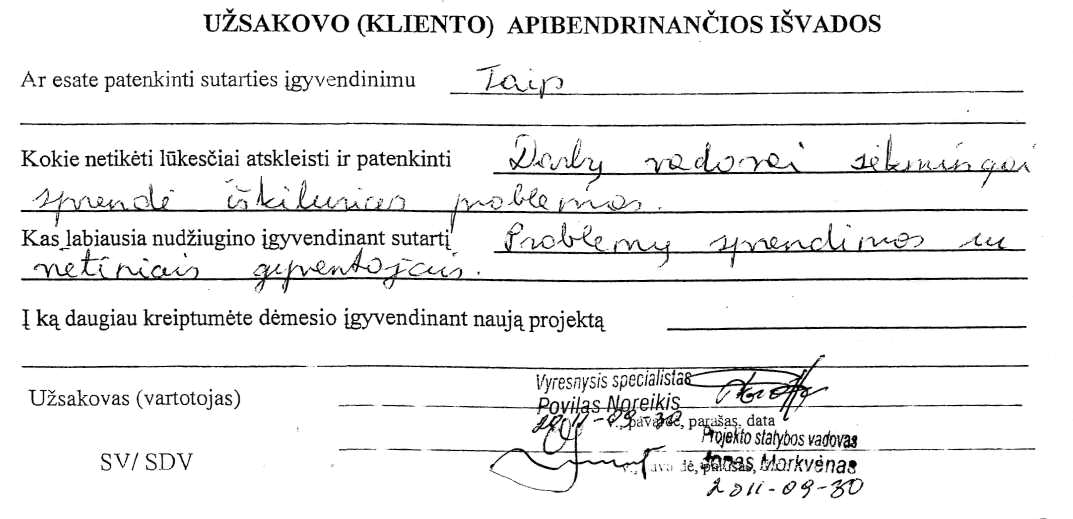 UŽSAKOVO (KLIENTO) APIBENDRINANČIOS IŠVADOS
Ar esate patenkinti sutarties įgyvendinimu Taip
Kokie netikėti lūkesčiai atskleisti ir patenkinti Darbų vadovai sėkmingai
sprendė iškilusias problemas.
Kas labiausia nudžiugino įgyvendinant sutartį Problemų sprendimas su
vietiniais gyventojais.
Į ką daugiau kreiptumėte dėmesio įgyvendinant naują projektą
Vyresnysis specialistas
Užsakovas (vartotojas) Povilas Noreikis
2011-09-30 pavardė, parašas, data
Projekto statybos vadovas
SV/ SDV Jonas Morkvėnas
2011-09-30